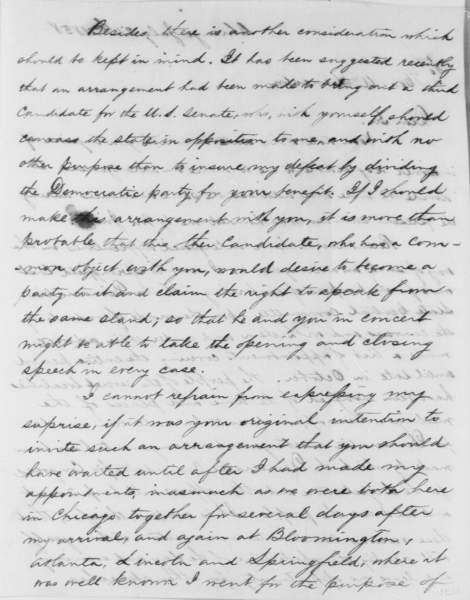 Besides, there is another consideration which
should be kept in mind. It has been suggested recently
that an arrangement had been made to bring out a third
Candidate for the U.S. Senate, who, with yourself, should
canvass the state in opposition to me, and with no
other purpose than to insure my defeat by dividing
the Democratic party for your benefit. If I should
make this arrangement with you, it is more than
probable that this other Candidate, who has a com-
-mon object with you, would desire to become a
party to it and claim the right to speak from
the same stand; so that he and you in concert
might be able to take the opening and closing
speech in every case.
I cannot refrain from expressing my
suprise, if it was your original intention to
invite such an arrangement that you should
have waited until after I had made my
appointments, inasmuch as we were both here
in Chicago together for several days after
my arrival, and again at Bloomington,
Atlanta, Lincoln and Springfield, where it
was well known I went for the purpose of